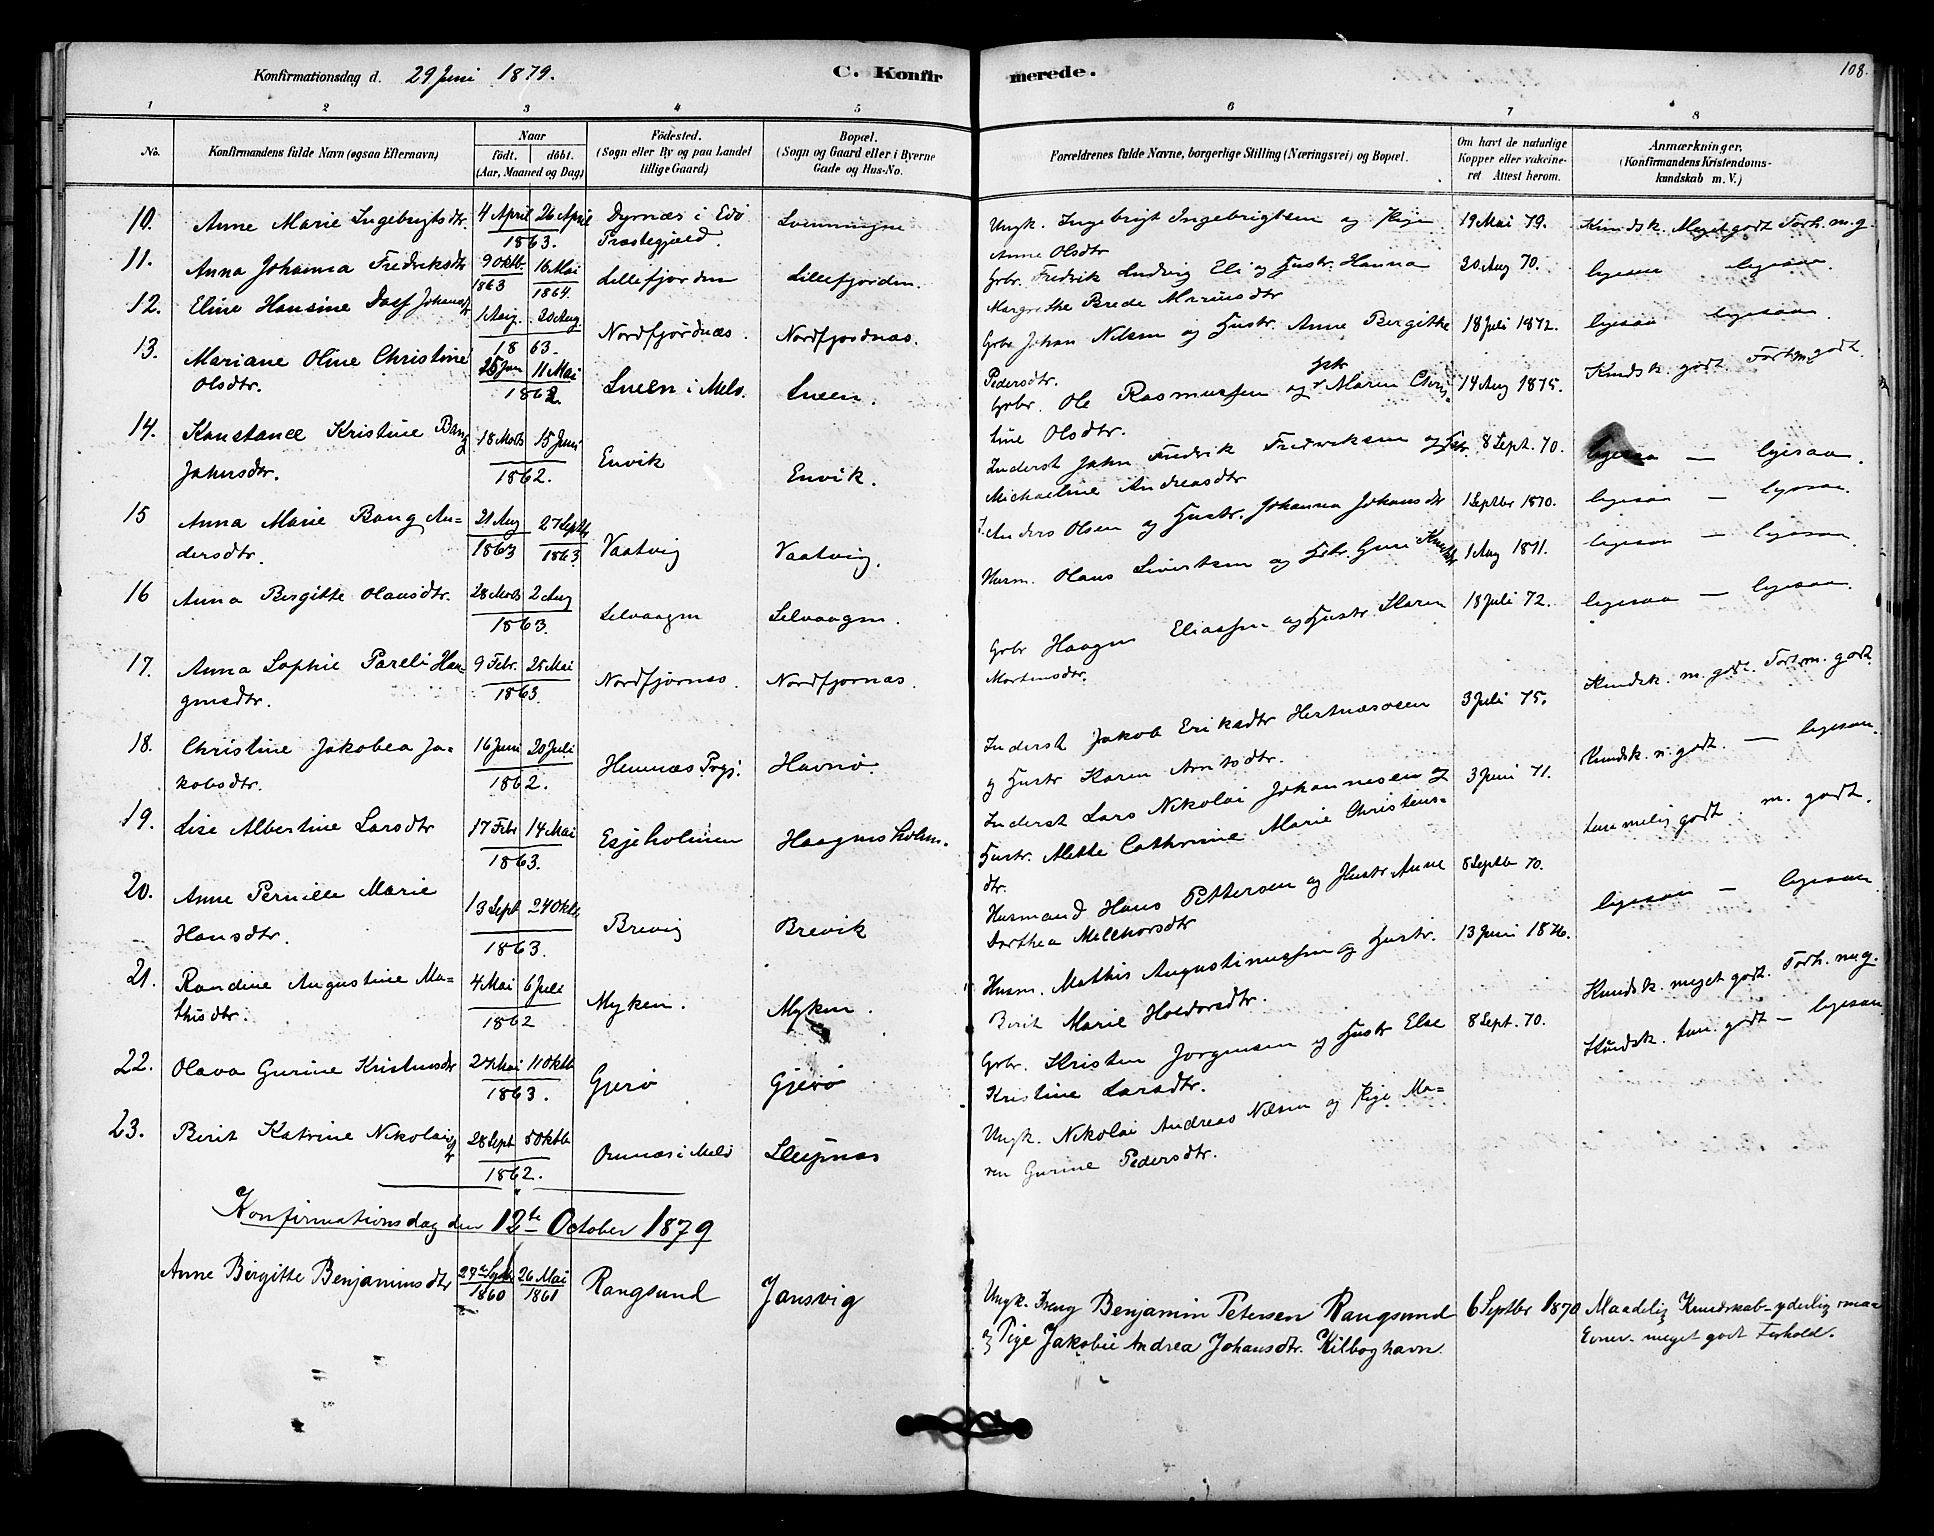 Konfirmationsdag d. 29 Juni 1879. C. Konfirmerede. 108.
1 2 3 4 5 6 7 8
No. Konfirmandens fulde Navn (ogsaa Efternavn) Naar født. døbt. (Aar, Maaned og Dag) Födested. (Sogn eller By og paa Landet tillige Gaard) Bopæl. (Sogn og Gaard eller i Byerne Gade og Hus-No. Forældrenes fulde Navne, borgerlige Stilling (Næringsvei) og Bopæl. Om havt de naturlige Kopper eller vakcineret Attest herom. Anmærkninger. (Konfirmandens Kristendomskundskab m. V.)
10. Anne Marie Ingebrigtsdtr. 4 April 26 April 1863. Dyrnæs i Edö Præstegjæld. Ungk. Ingebrigt Ingebrigtsen og Pige Anne Olsdtr 19 Mai 79. Kundsk. Meget godt Forh. m. g.
11. Anna Johanna Fredriksdtr 9 Oktb. 1863 16 Mai 1864. Lillefjorden Lillefjorden. Grbr. Fredrik Ludvig Eli og Hustr. Hanna Margrethe Brede Mariusdtr 20 Aug 70. ligesaa ligesaa.
12. Eline Hansine Dass Johansdtr 1 Aug. 20 Aug. 1863. Nordfjordnæs. Nordfjordnæs. Grbr Johan Nilsen og Hustr. Anne Bergitte Pedersdtr. 18 Juli 1872. ligesaa ligesaa.
13. Mariane Oline Christine Olsdtr. 25 Jan 11 Mai 1862. Eneen i Melö. Eneen. Grbr. Ole Rasmussen og Hstr Maren Christine Olsdtr. 14 Aug 1875. Kundsk. godt. Forh. m godt.
14. Konstance Kristine Bang Jahnsdtr. 18 Marts 15 Juni 1862. Envik Envik. Inderst Jahn Fredrik Fredriksen og Hstr. Michaeline Andreasdtr 8 Sept. 70. ligesaa — ligesaa.
15 Anna Marie Bang Andersdtr. 21 Aug 1863 27 Septb 1863 Vaatvig Vaatvig. Anders Olsen og Hustr. Johanna Johansdtr 1 Septbr 1870. ligesaa — ligesaa.
16 Anna Birgitte Olausdtr. 28 Marts 2 Aug 1863. Selvaagen Selvaagen. Husm. Olaus Sivertsen og Hstr. Guri Knudsdtr 1 Aug 1871. ligesaa — ligesaa.
17. Anna Sophie Pareli Haagensdtr. 9 Febr. 25 Mai 1863. Nordfjornæs. Nordfjornæs. Grbr Haagen Eliassen og Hustr Karen Mortensdtr. 18 Juli 72. ligesaa — ligesaa.
18. Christine Jakobea Jakobsdtr. 16 Juni 20 Juli 1862. Hemnæs Prgj. Havnö. Inderst Jakob Eriksdtr Hestnæsosen og Hustr Karen Arntsdtr. 3 Juli 75. Kundsk. m. godt. Forh. m. godt.
19. Lise Albertine Larsdtr 17 Febr 14 Mai 1863. Esjeholmen Haagensholm. Inderst Lars Nikolai Johannesen og Hustr. Mette Cathrine Marie Christensdtr. 3 Juni 71. Kundsk. n. godt. — ligesaa.
20. Anne Pernille Marie Hansdtr. 13 Sept 24 Oktb 1863. Brevig Brevik Husmand Hans Pettersen og Hustr Anne Dorthea Melchorsdtr 8 Septbr 70. temmelig godt. m. godt.
21. Randine Augustine Mathisdtr. 4 Mai 6 Juli 1862 Myken. Myken. Husm. Mathis Augustinussen og Hustr. Berit Marie Holdorsdtr. 13 Juni 1876. ligesaa — ligesaa
22. Olava Gurine Kristensdtr 27 Mai 11 Oktb 1863. Gjerö Gjerö Grbr. Kristen Jorgensen og Hustr Else Kristine Larsdtr. 8 Sept. 70. Kundsk. meget godt. Forh. m g.
23. Berit Katrine Nikolaidtr 28 Sept 5 Oktb 1862. Ornæs i Melö Sleipnæs Ungk. Nikolai Andreas Nilsen og Pige Maren Gurine Pedersdtr. Kundsk. tem. godt — ligesaa
Konfirmationsdag den 12te October 1879
Anne Birgitte Benjaminsdtr 27de Septb 1860 26 Mai 1861 Rangsund Jansvig Ungk. Dreng Benjamin Petersen Rangsund og Pige Jakobie Andrea Johansdtr. Kilboghavn. 6 Septbr 1870 Maadelig Kundskab - yderlig smaa Evner - meget godt Forhold.